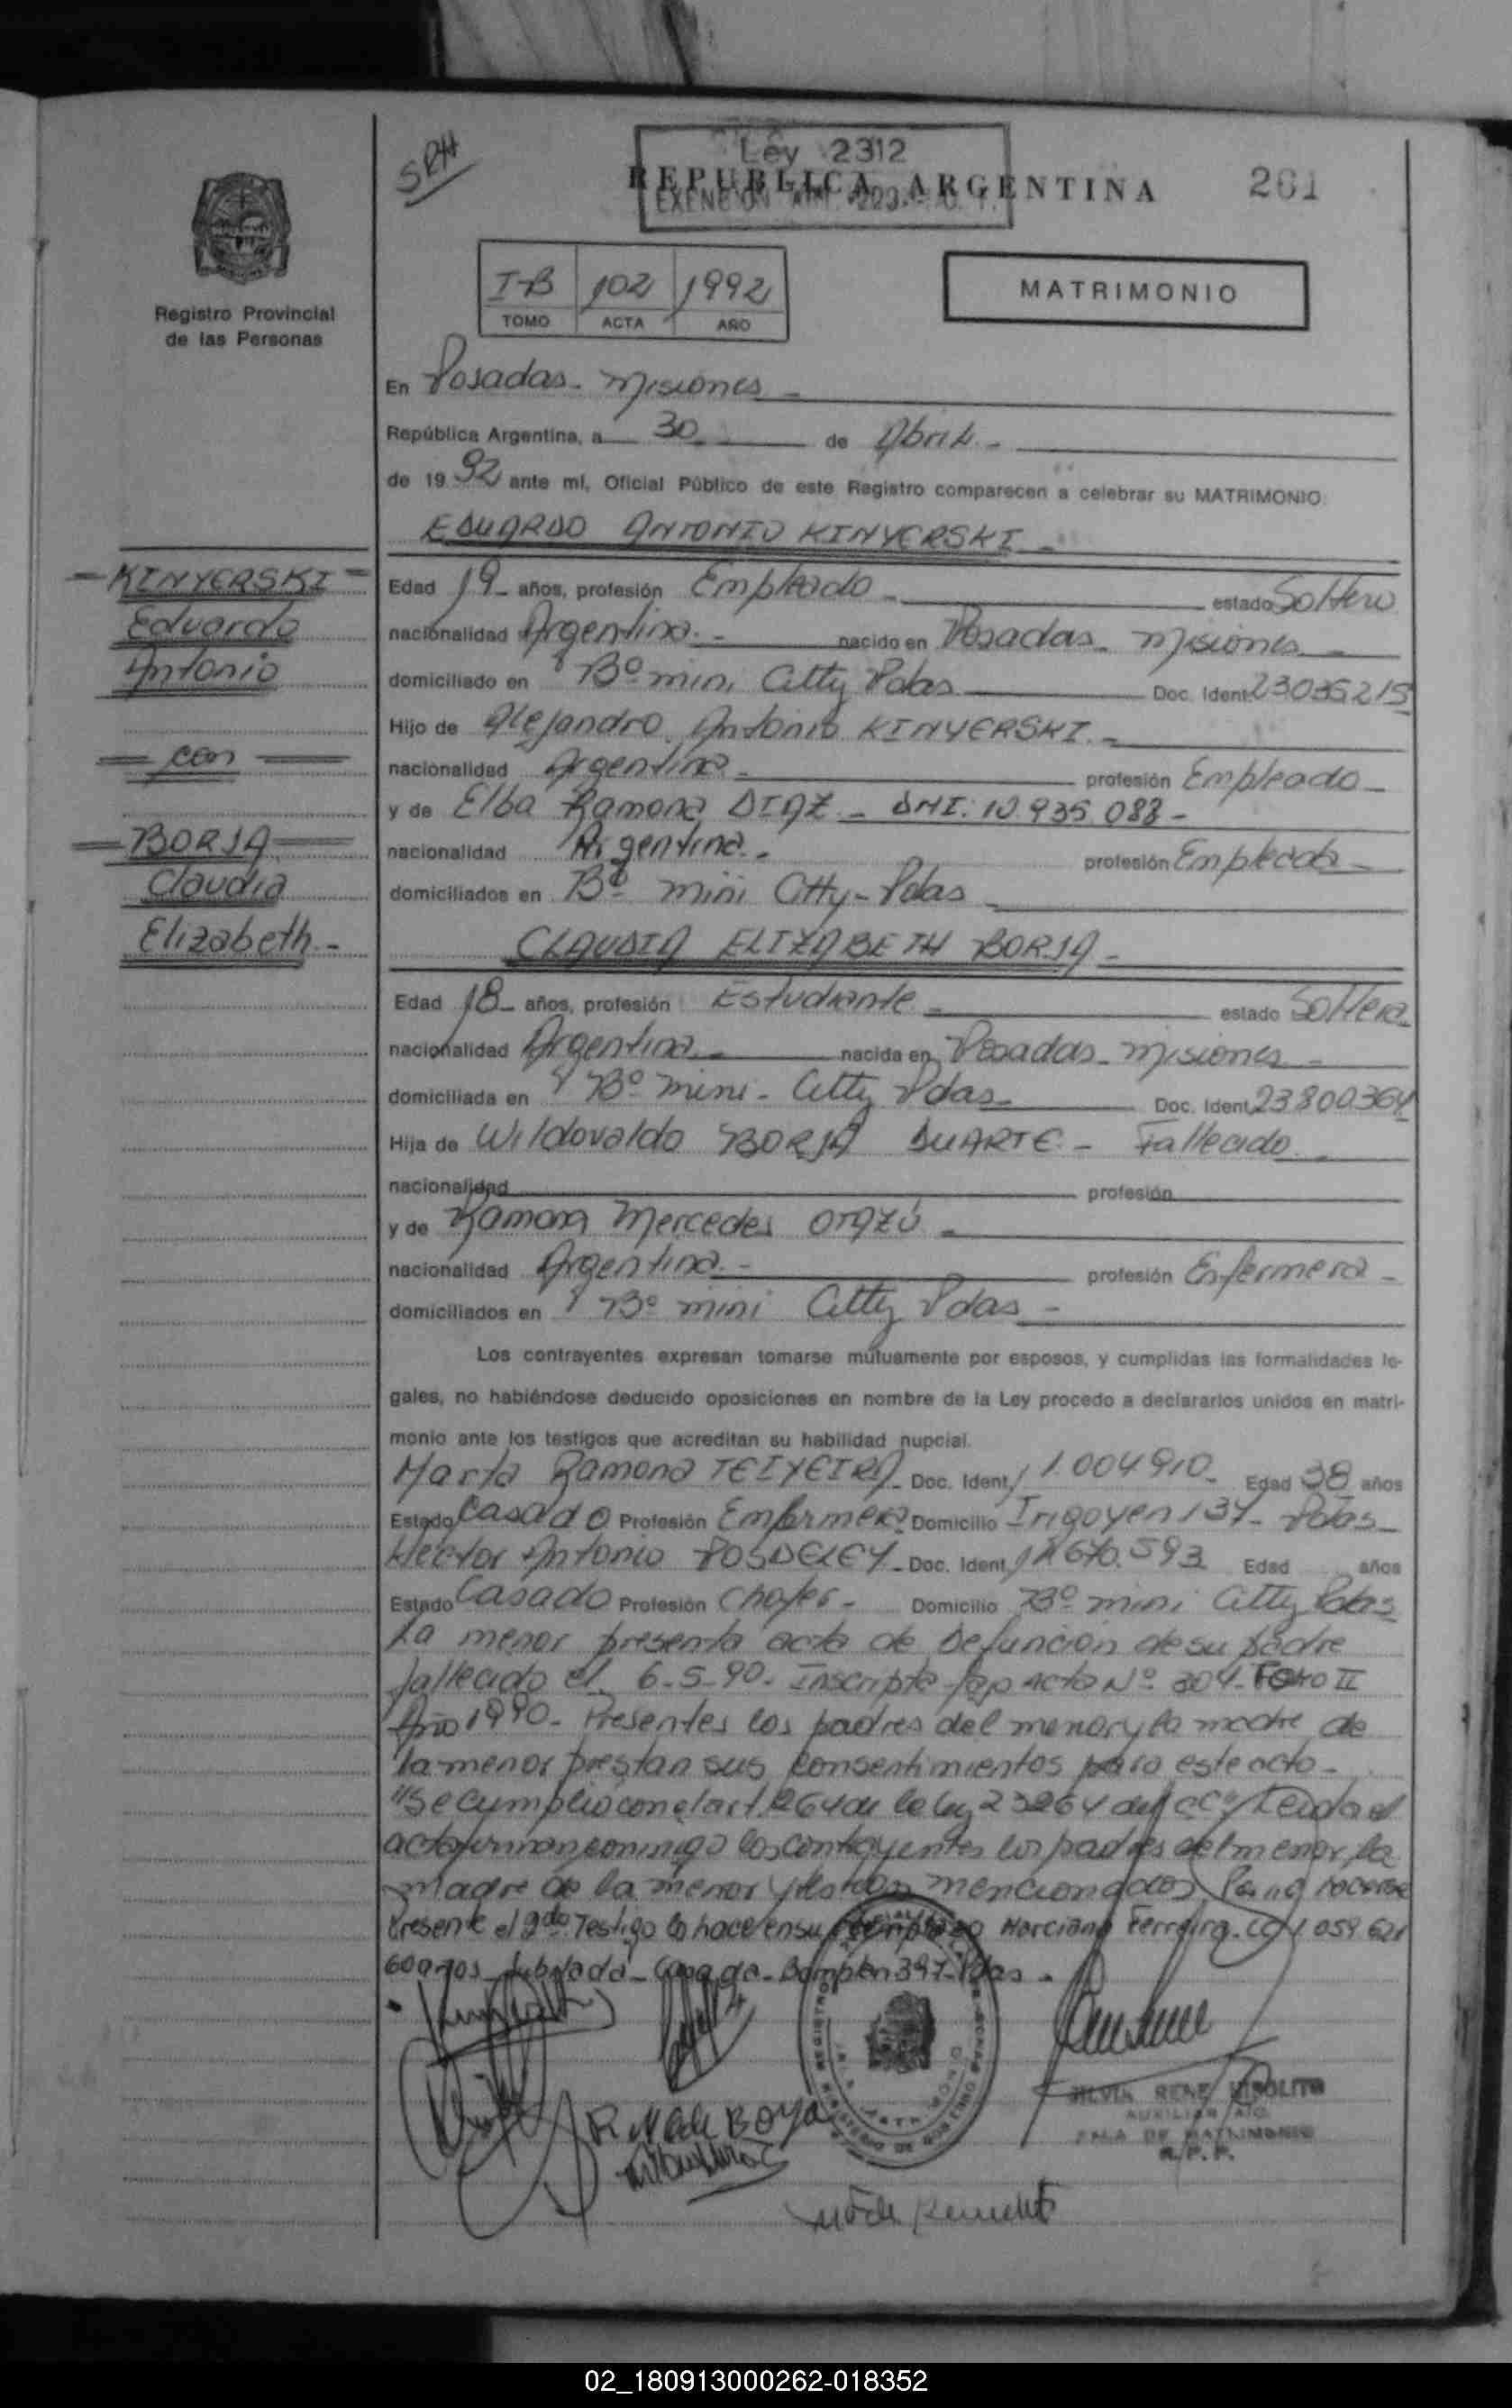 SRH
Ley 2312
REPUBLICA ARGENTINA
261
EXENCION ART. 223
I-B 102 1992
TOMO ACTA AÑO
MATRIMONIO
Registro Provincial
de las Personas
En Posadas - Misiones -
República Argentina, a 30 de Abril -
de 19 92 ante mí, Oficial Público de este Registro comparecen a celebrar su MATRIMONIO:
EDUARDO ANTONIO KINYERSKI -
- KINYERSKI -
Eduardo
Antonio
= con =
= BORJA =
Claudia
Elizabeth -
Edad 19 - años, profesión Empleado - estado Soltero
nacionalidad Argentina - nacido en Posadas - Misiones -
domiciliado en Bº mini Citty Pdas Doc. Ident. 23035215
Hijo de Alejandro Antonio KINYERSKI -
nacionalidad Argentina - profesión Empleado -
y de Elba Ramona DIAZ - DNI: 10.935.088 -
nacionalidad Argentina - profesión Empleada -
domiciliados en Bº mini Citty - Pdas -
CLAUDIA ELIZABETH BORJA -
Edad 18 - años, profesión Estudiante - estado Soltera
nacionalidad Argentina - nacida en Posadas - Misiones -
domiciliada en Bº mini - Citty Pdas - Doc. Ident. 23800364
Hija de Wildovaldo BORJA DUARTE - Fallecido
nacionalidad profesión
y de Ramona Mercedes OTAZÚ -
nacionalidad Argentina - profesión Enfermera -
domiciliados en Bº mini Citty Pdas -
Los contrayentes expresan tomarse mutuamente por esposos, y cumplidas las formalidades le-
gales, no habiéndose deducido oposiciones en nombre de la Ley procedo a declararlos unidos en matri-
monio ante los testigos que acreditan su habilidad nupcial.
Marta Ramona TEIXEIRA - Doc. Ident. 11.004910 - Edad 38 años
Estado Casado Profesión Enfermera Domicilio Irigoyen 137 - Pdas -
Hector Antonio POSDELEY - Doc. Ident. 670.593 Edad años
Estado Casado Profesión Chofer - Domicilio Bº mini Citty Pdas
La menor presenta acta de Defunción de su padre
fallecido el 6-5-90 - Inscripta acta Nº 304 - Tomo II
Año 1990 - Presentes los padres del menor y la madre de
la menor prestan sus consentimientos para este acto -
"Se cumplio con el art. 264 de la ley 23264 del CC" Leida el
acta firman conmigo los contrayentes los padres del menor, la
madre de la menor y testigos mencionados Por no hacerse
Presente el 2do Testigo lo hace en su reemplazo Marciana Ferreira - 1.059.621
60 años - Jubilada - Casada - Bompland 397 - Pdas -
R M de Borja
SILVIA RENE HIPOLITO
AUXILIAR
SALA DE MATRIMONIO
R.P.P.
02_180913000262-018352